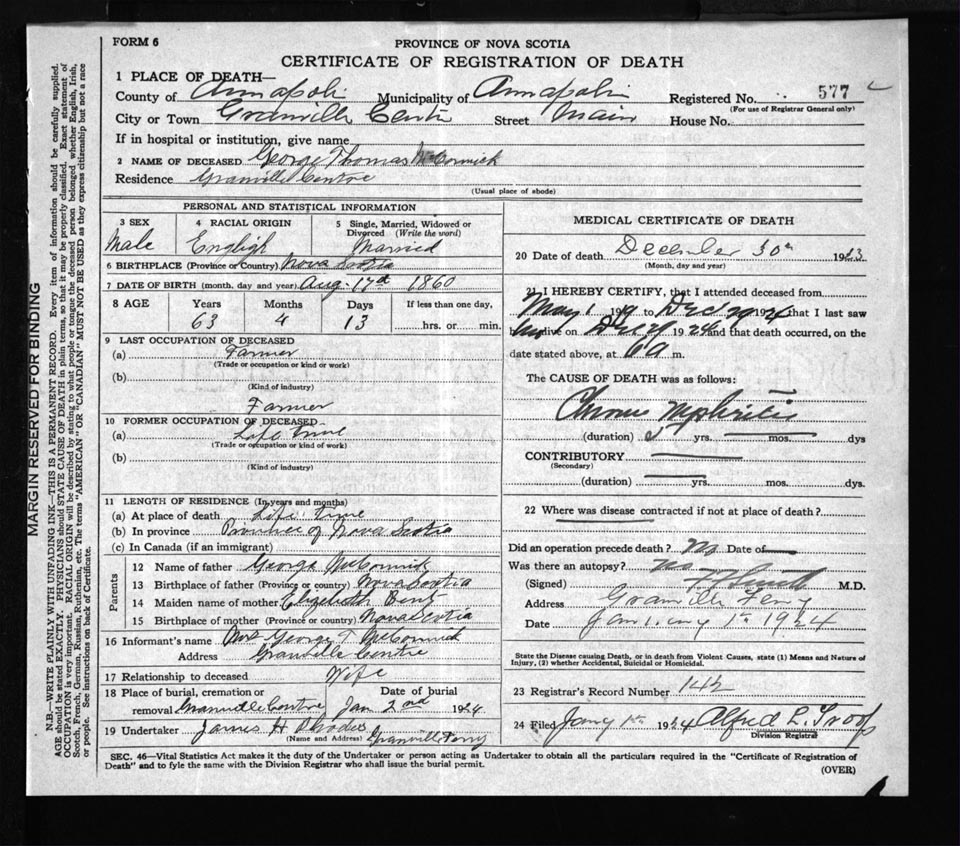 FORM 6
PROVINCE OF NOVA SCOTIA
CERTIFICATE OF REGISTRATION OF DEATH
1 PLACE OF DEATH—
County of Annapolis Municipality of Annapolis Registered No. 577
(For use of Registrar General only)
City or Town Granville Centre Street Main House No.
If in hospital or institution, give name
2 NAME OF DECEASED George Thomas McCormick
Residence Granville Centre
(Usual place of abode)
PERSONAL AND STATISTICAL INFORMATION
3 SEX 4 RACIAL ORIGIN 5 Single, Married, Widowed or Divorced (Write the word)
Male English Married
6 BIRTHPLACE (Province or Country) Nova Scotia
7 DATE OF BIRTH (month, day and year) Aug. 17th 1860
8 AGE Years Months Days If less than one day,
63 4 13 hrs. or min.
9 LAST OCCUPATION OF DECEASED
(a) Farmer
(Trade or occupation or kind or work)
(b)
(Kind of industry)
Farmer
10 FORMER OCCUPATION OF DECEASED
(a) Life time
(Trade or occupation or kind of work)
(b)
(Kind of industry)
11 LENGTH OF RESIDENCE (In years and months)
(a) At place of death Life time
(b) In province Province of Nova Scotia
(c) In Canada (if an immigrant)
Parents
12 Name of father George McCormick
13 Birthplace of father (Province or country) Nova Scotia
14 Maiden name of mother Elizabeth Bent
15 Birthplace of mother (Province or country) Nova Scotia
16 Informant's name Mrs George T McCormick
Address Granville Centre
17 Relationship to deceased Wife
18 Place of burial, cremation or Date of burial
removal Granville Centre Jan 2nd 1924
19 Undertaker James H Rhodes Granville Ferry
(Name and Address)
MEDICAL CERTIFICATE OF DEATH
20 Date of death December 30th 1923
(Month, day and year)
21 I HEREBY CERTIFY, that I attended deceased from
May 1 19 to Dec 192 that I last saw
him alive on Dec 29 1924 and that death occurred, on the
date stated above, at 6 a m.
The CAUSE OF DEATH was as follows:
Chronic Nephritis
(duration) yrs. mos. dys
CONTRIBUTORY
(Secondary)
(duration) yrs. mos. dys.
22 Where was disease contracted if not at place of death?
Did an operation precede death? No Date of
Was there an autopsy? No
(Signed) Smith M.D.
Address Granville Ferry
Date January 1st 1924
State the Disease causing Death, or in death from Violent Causes, state (1) Means and Nature of
Injury, (2) whether Accidental, Suicidal or Homicidal.
23 Registrar's Record Number 142
24 Filed Jany 1st 1924 Alfred L. Troop
Division Registrar
SEC. 46—Vital Statistics Act makes it the duty of the Undertaker or person acting as Undertaker to obtain all the particulars required in the "Certificate of Registration of
Death" and to fyle the same with the Division Registrar who shall issue the burial permit.
(OVER)
MARGIN RESERVED FOR BINDING
N.B.—WRITE PLAINLY WITH UNFADING INK—THIS IS A PERMANENT RECORD. Every item of information should be carefully supplied.
AGE should be stated EXACTLY. PHYSICIANS should STATE CAUSE OF DEATH in plain terms, so that it may be properly classified. Exact statement of
OCCUPATION is very important. RACIAL ORIGIN will be described by stating to what people or tongue the deceased person belonged whether English, Irish,
Scotch, French, German, Russian, Ruthenian, etc. The terms "AMERICAN" OR "CANADIAN" MUST NOT BE USED as they express citizenship but not a race
or people. See instructions on back of Certificate.